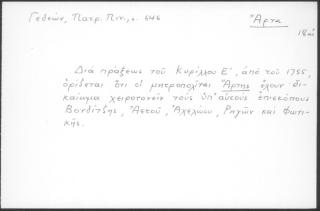 Γεδεών, Πατρ. Πιν., σ. 646
Ἄρτα
18αἰ
Διὰ πράξεως τοῦ Κυρίλλου Ε', ἀπὸ τοῦ 1755,
ὁρίζεται ὅτι οἱ μητροπολῖται Ἄρτης ἔχουν δι-
καίωμα χειροτονεῖν τοὺς ὑπ' αὐτοὺς ἐπισκόπους
Βονδίτζης, Ἀετοῦ, Ἀχελώου, Ρηγῶν καὶ Φωτι-
κῆς.